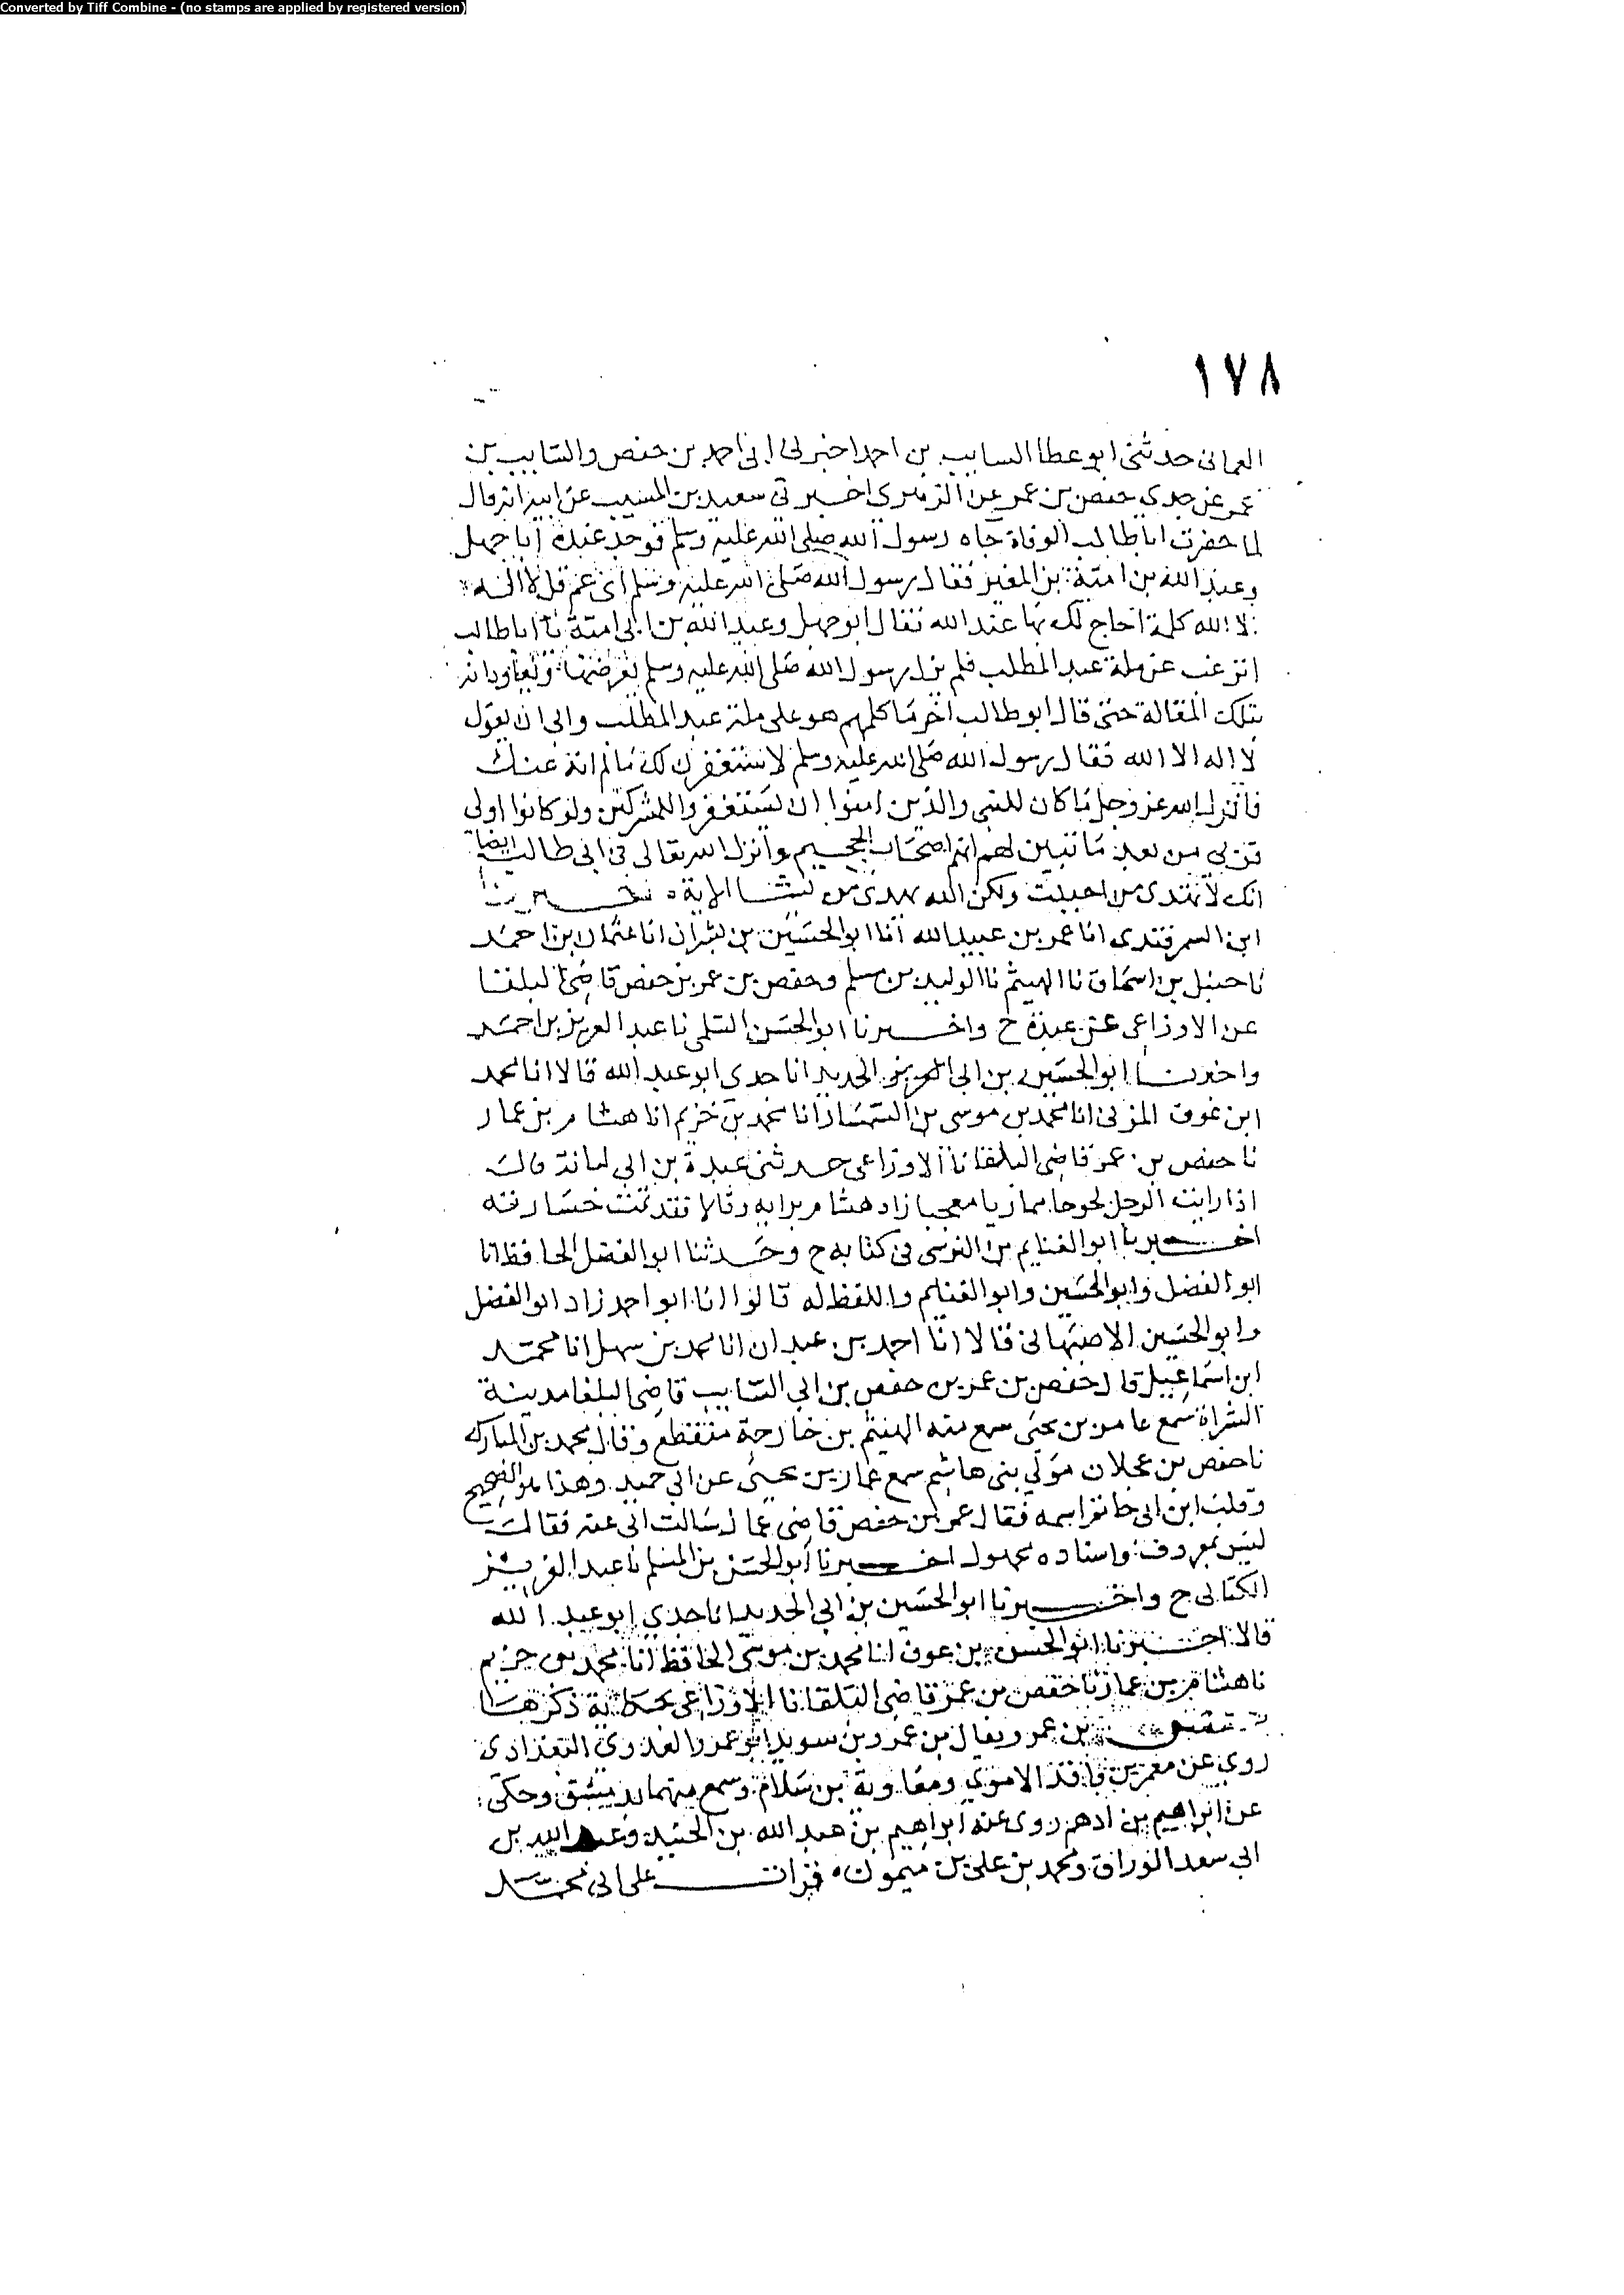 Converted by Tiff Combine - (no stamps are applied by registered version)
١٧٨
العماني حدثني ابو عطا السايب بن احمد اخبرني ابي احمد بن حفص والسايب بن
عمر عن جدي حفص بن عمر عن الزهري اخبرني سعيد بن المسيب عن ابيه انه قال
لما حضرت ابا طالب الوفاة جاه رسول الله صلى الله عليه وسلم فوجد عنده ابا جهل
وعبد الله بن امية بن المغيرة فقال رسول الله صلى الله عليه وسلم اي عم قل لا اله
الا الله كلمة احاج لك بها عند الله فقال ابو جهل وعبد الله بن ابي امية يا ابا طالب
اترغب عن ملة عبد المطلب فلم يزل رسول الله صلى الله عليه وسلم يعرضها ويعاودانه
بتلك المقالة حتى قال ابو طالب اخر ما كلمهم هو على ملة عبد المطلب وابى ان يقول
لا اله الا الله فقال رسول الله صلى الله عليه وسلم لاستغفرن لك ما لم انه عنك
فانزل الله عز وجل ما كان للنبي والذين امنوا ان يستغفروا للمشركين ولو كانوا اولي
قربى من بعد ما تبين لهم انهم اصحاب الجحيم وانزل الله تعالى في ابي طالب ايضا
انك لا تهتدى من احببت ولكن الله يهدى من يشا الاية اخبرنا
ابن السمرقندى انا عمر بن عبيد الله انا ابو الحسين بن بشران انا عثمان بن احمد
نا حنبل بن اسحاق نا الهيثم نا الوليد بن مسلم وحفص بن عمر بن حفص قاضي البلقا
عن الاوزاعى عن عبدة ح واخبرنا ابو الحسن السلمي نا عبد العزيز بن احمد
واخبرنا ابو الحسين بن ابي الحديد انا جدى ابو عبد الله قالا انا محمد
ابن عوف المزني انا محمد بن موسى بن السمسار انا محمد بن خزيم انا هشام بن عمار
نا حفص بن عمر قاضي البلقا نا الاوزاعى حدثني عبدة بن ابي لبابة قال
اذا رايت الرجل لجوجا مماريا معجبا زاد هشام برايه وقالا فقد تمت خسارته
اخبرنا ابو الغنايم بن النرسي في كتابه ح وحدثنا ابو الفضل الحافظ انا
ابو الفضل وابو الحسين وابو الغنايم واللفظ له قالوا انا ابو احمد زاد ابو الفضل
وابو الحسين الاصبهاني قالا انا احمد بن عبدان انا محمد بن سهل انا محمد
ابن اسماعيل قال حفص بن عمر بن حفص بن ابي السايب قاضي البلقا مدينة
الشراة سمع عامر بن يحيى سمع منه الهيثم بن خارجة منقطع وقال محمد بن المبارك
نا حفص بن عجلان مولى بني هاشم سمع عمار بن يحيى عن ابي حميد وهذا هو الصحيح
وقلب ابن ابي حاتم اسمه فقال عمر بن حفص قاضي عمان سالت ابي عنه فقال
ليس بمعروف واسناده مجهول اخبرنا ابو الحسن بن المسلم نا عبد العزيز
الكتاني ح واخبرنا ابو الحسين بن ابي الحديد انا جدي ابو عبد الله
قالا اخبرنا ابو الحسن بن عوف انا محمد بن موسى الحافظ انا محمد بن خزيم
نا هشام بن عمار نا حفص بن عمر قاضي البلقا نا الاوزاعي بحكاية ذكرها
حفص بن عمر ويقال بن عمرو بن سويد ابو عمرو العدوي البغدادى
روى عن معمر بن واقد الاموي ومعاوية بن سلام وسمع منهما بدمشق وحكى
عن ابراهيم بن ادهم روى عنه ابراهيم بن عبد الله بن الجنيد وعبد الله بن
ابي سعد الوراق ومحمد بن علي بن ميمون قرات على ابي محمد